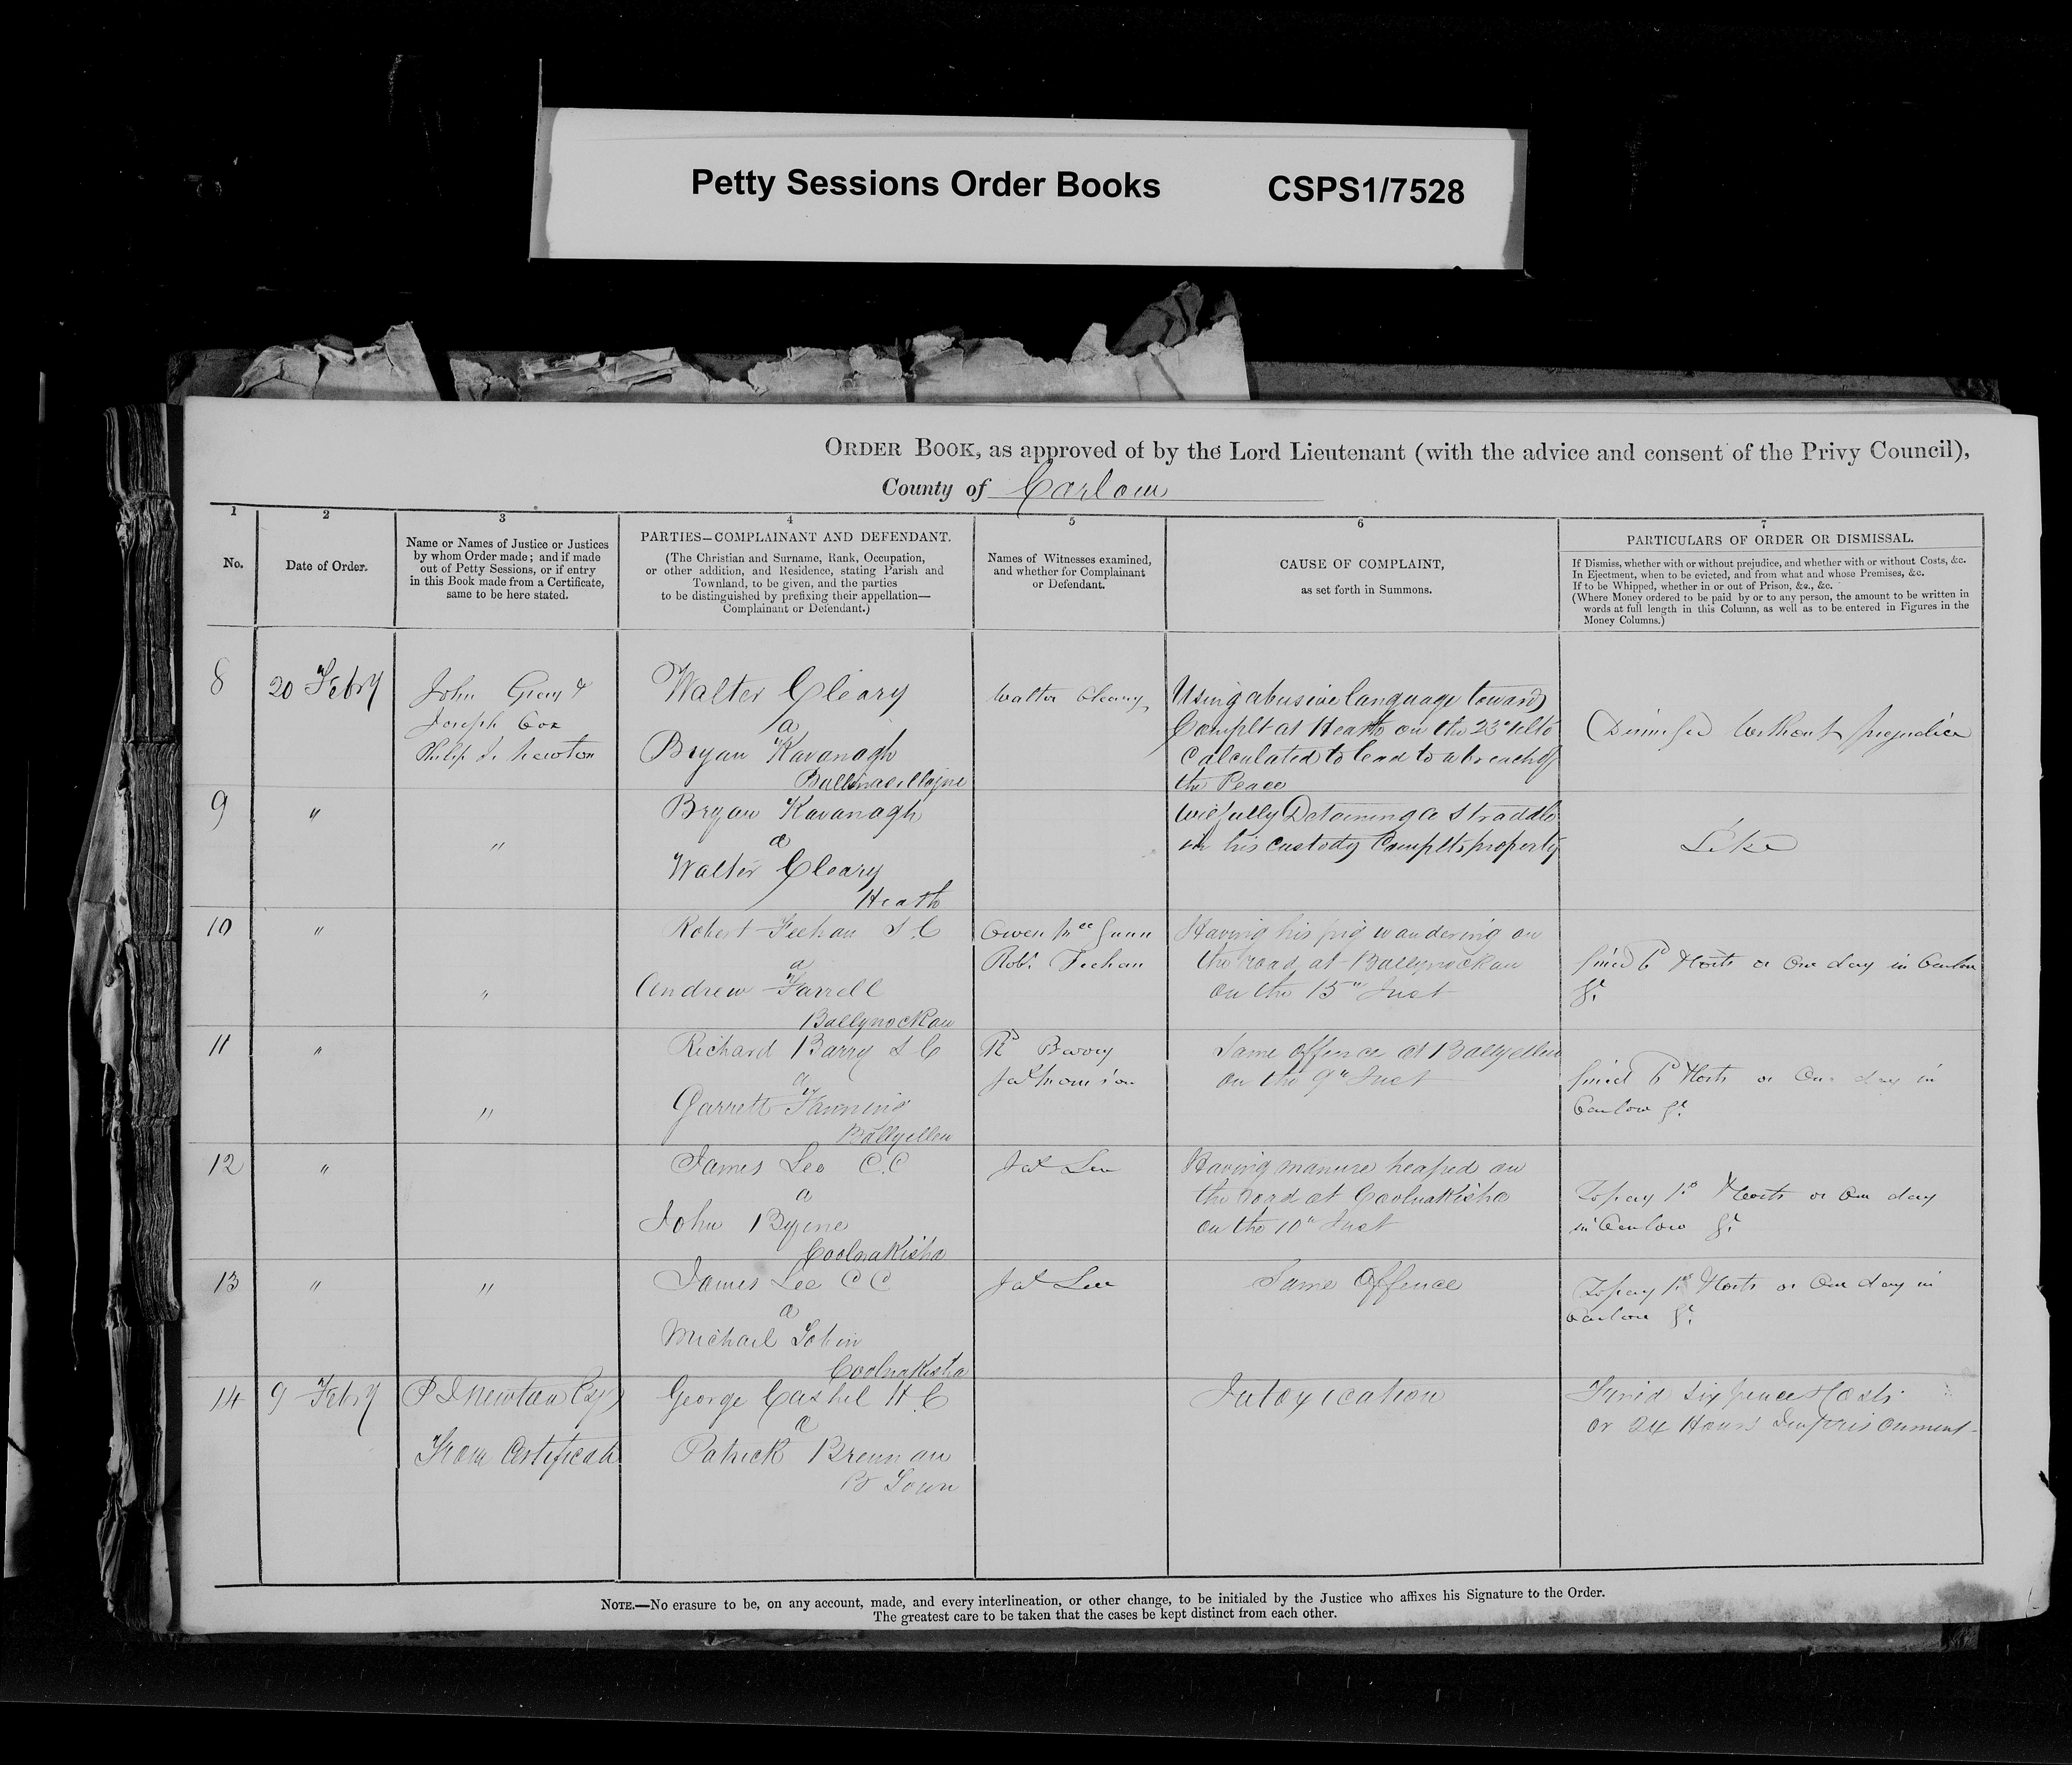 Petty Sessions Order Books CSPS1/7528
ORDER BOOK, as approved of by the Lord Lieutenant (with the advice and consent of the Privy Council),
County of Carlow
1
No.
2
Date of Order.
3
Name or Names of Justice or Justices
by whom Order made; and if made
out of Petty Sessions, or if entry
in this Book made from a Certificate,
same to be here stated.
4
PARTIES—COMPLAINANT AND DEFENDANT.
(The Christian and Surname, Rank, Occupation,
or other addition, and Residence, stating Parish and
Townland, to be given, and the parties
to be distinguished by prefixing their appellation—
Complainant or Defendant.)
5
Names of Witnesses examined,
and whether for Complainant
or Defendant.
6
CAUSE OF COMPLAINT,
as set forth in Summons.
7
PARTICULARS OF ORDER OR DISMISSAL.
If Dismiss, whether with or without prejudice, and whether with or without Costs, &c.
In Ejectment, when to be evicted, and from what and whose Premises, &c.
If to be Whipped, whether in or out of Prison, &c., &c.
(Where Money ordered to be paid by or to any person, the amount to be written in
words at full length in this Column, as well as to be entered in Figures in the
Money Columns.)
8
20 Febry
John Gray &
Joseph Cox
Philip J. Newton
Walter Cleary
a
Bryan Kavanagh
Walter Cleary
Using abusive language towards
Complt at Heath on the 23rd ulto
Calculated to lead to a breach of
the Peace
Dismissed Without prejudice
9
"
"
Bryan Kavanagh
a
Walter Cleary
Heath
Wilfully Detaining a Straddle
in his custody Complts property
Like
10
"
"
Robert Feehan S.C
a
Andrew Farrell
Ballynockan
Owen McGunn
Robt. Feehan
Having his pig wandering on
the road at Ballynockan
on the 15" Inst
fined 6d & Costs or One day in Carlow
Gl.
11
"
"
Richard Barry S C
a
Garrett Fanning
Ballyellen
Rd Barry
Same offence at Ballyellen
on the 9" Inst
fined 6d & Costs or One day in
Carlow Gl.
12
"
James Lee C.C
a
John Byrne
Coolnakisha
Jas Lee
Having manure heaped on
the road at Coolnakisha
on the 10" Inst
To pay 1s & Costs or One day
in Carlow Gl.
13
"
"
James Lee C C
a
Michael Tobin
Coolnakisha
Jas Lee
Same Offence
To pay 1s & Costs or One day in
Carlow Gl.
14
9 Febry
P J Newton Esqr
From Certificate
George Cashel H.C
a
Patrick Brennan
B Town
Intoxication
Fined six pence & Costs
or 24 Hours Imprisonment
NOTE.—No erasure to be, on any account, made, and every interlineation, or other change, to be initialed by the Justice who affixes his Signature to the Order.
The greatest care to be taken that the cases be kept distinct from each other.